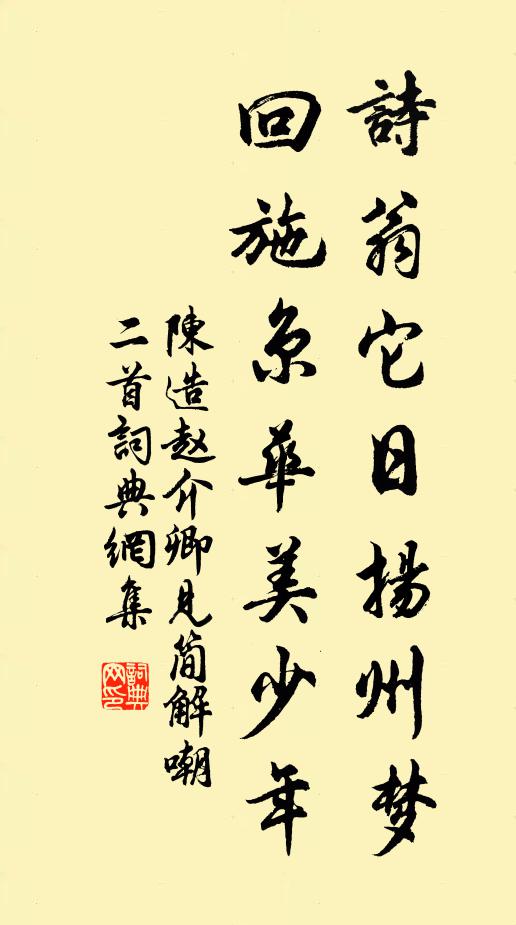 詩翁它日揚州梦
回施京華美少年
陳造赵介卿見简解嘲
二首詞典網集
詞典网印